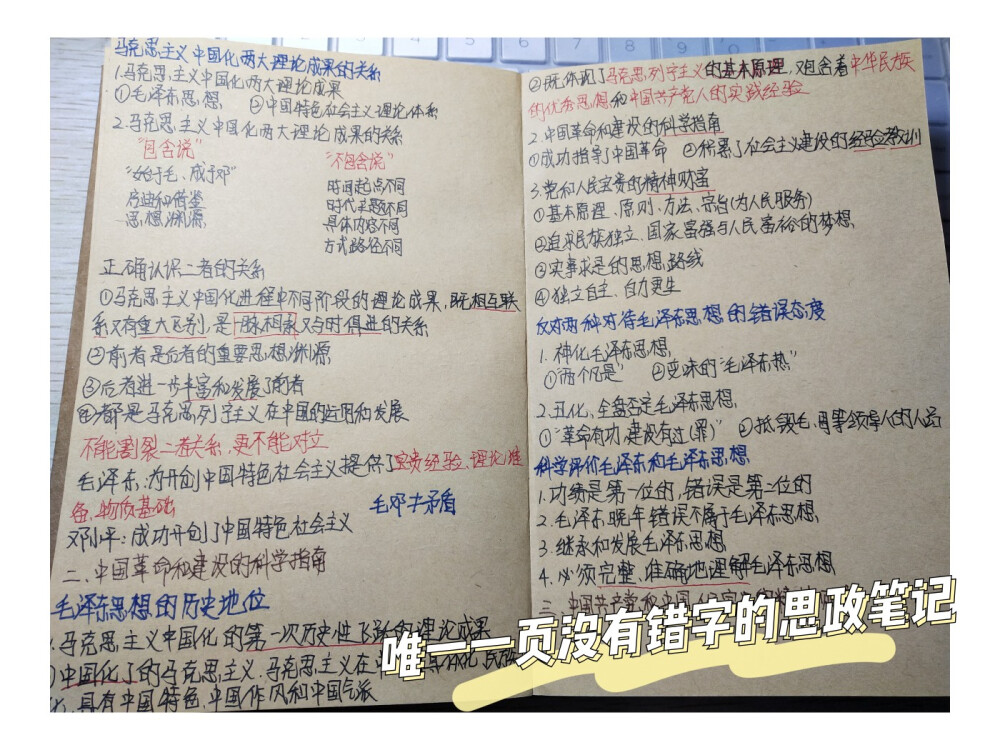 马克思主义中国化两大理论成果的关系
1.马克思主义中国化两大理论成果
①毛泽东思想 ②中国特色社会主义理论体系
2.马克思主义中国化两大理论成果的关系
"包含说" "不包含说"
"始于毛、成于邓" 时间起点不同
启迪和借鉴 时代主题不同
思想渊源 具体内容不同
方式路径不同
正确认识二者的关系
①马克思主义中国化进程中不同阶段的理论成果,既相互联
系又有重大区别,是一脉相承又与时俱进的关系
②前者是后者的重要思想渊源
③后者进一步丰富和发展了前者
④都是马克思列宁主义在中国的运用和发展
不能割裂二者关系,更不能对立
毛泽东:为开创中国特色社会主义提供了宝贵经验、理论准
备、物质基础 毛邓≠矛盾
邓小平:成功开创了中国特色社会主义
二、中国革命和建设的科学指南
毛泽东思想的历史地位
1.马克思主义中国化的第一次历史性飞跃的理论成果
中国化了的马克思主义.马克思主义在 民族
化,具有中国特色、中国作风和中国气派
②既体现了马克思列宁主义的基本原理,又包含着中华民族
的优秀思想和中国共产党人的实践经验
2.中国革命和建设的科学指南
①成功指导了中国革命 ②积累了社会主义建设的经验教训
3.党和人民宝贵的精神财富
①基本原理、原则、方法、宗旨(为人民服务)
②追求民族独立、国家富强与人民富裕的梦想
③实事求是的思想路线
④独立自主、自力更生
反对两种对待毛泽东思想的错误态度
1.神化毛泽东思想
①"两个凡是" ②变味的"毛泽东热"
2.丑化、全盘否定毛泽东思想
①"革命有功,建设有过(罪)" ②抵毁毛、周等领导人的人品
科学评价毛泽东和毛泽东思想
1.功绩是第一位的,错误是第二位的
2.毛泽东晚年错误不属于毛泽东思想
3.继承和发展毛泽东思想
4.必须完整、准确地理解毛泽东思想
三、中国共产党和中国人
唯一一页没有错字的思政笔记